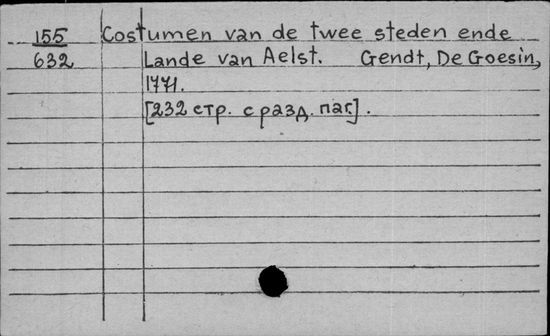 155 Costumen van de twee steden ende
632 Lande van Aelst. Gendt, De Goesin,
1771.
[232 стр. с разд. паг.].